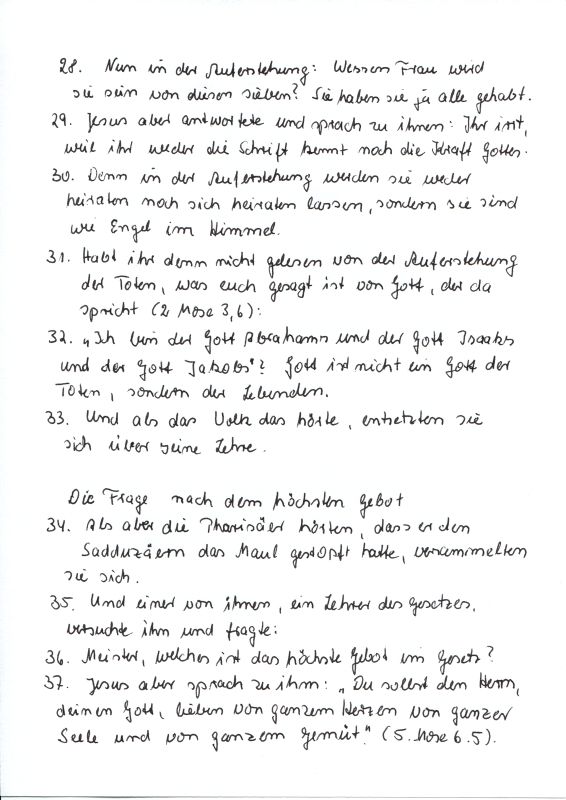 28. Nun in der Auferstehung: Wessen Frau wird
sie sein von diesen sieben? Sie haben sie ja alle gehabt.
29. Jesus aber antwortete und sprach zu ihnen: Ihr irrt,
weil ihr weder die Schrift kennt noch die Kraft Gottes.
30. Denn in der Auferstehung werden sie weder
heiraten noch sich heiraten lassen, sondern sie sind
wie Engel im Himmel.
31. Habt ihr denn nicht gelesen von der Auferstehung
der Toten, was euch gesagt ist von Gott, der da
spricht (2 Mose 3,6):
32. „Ich bin der Gott Abrahams und der Gott Isaaks
und der Gott Jakobs"? Gott ist nicht ein Gott der
Toten, sondern der Lebenden.
33. Und als das Volk das hörte, entsetzten sie
sich über seine Lehre.
Die Frage nach dem höchsten Gebot
34. Als aber die Pharisäer hörten, dass er den
Sadduzäern das Maul gestopft hatte, versammelten
sie sich.
35. Und einer von ihnen, ein Lehrer des Gesetzes,
versuchte ihn und fragte:
36. Meister, welches ist das höchste Gebot im Gesetz?
37. Jesus aber sprach zu ihm: „Du sollst den Herrn,
deinen Gott, lieben von ganzem Herzen von ganzer
Seele und von ganzem Gemüt." (5. Mose 6.5).